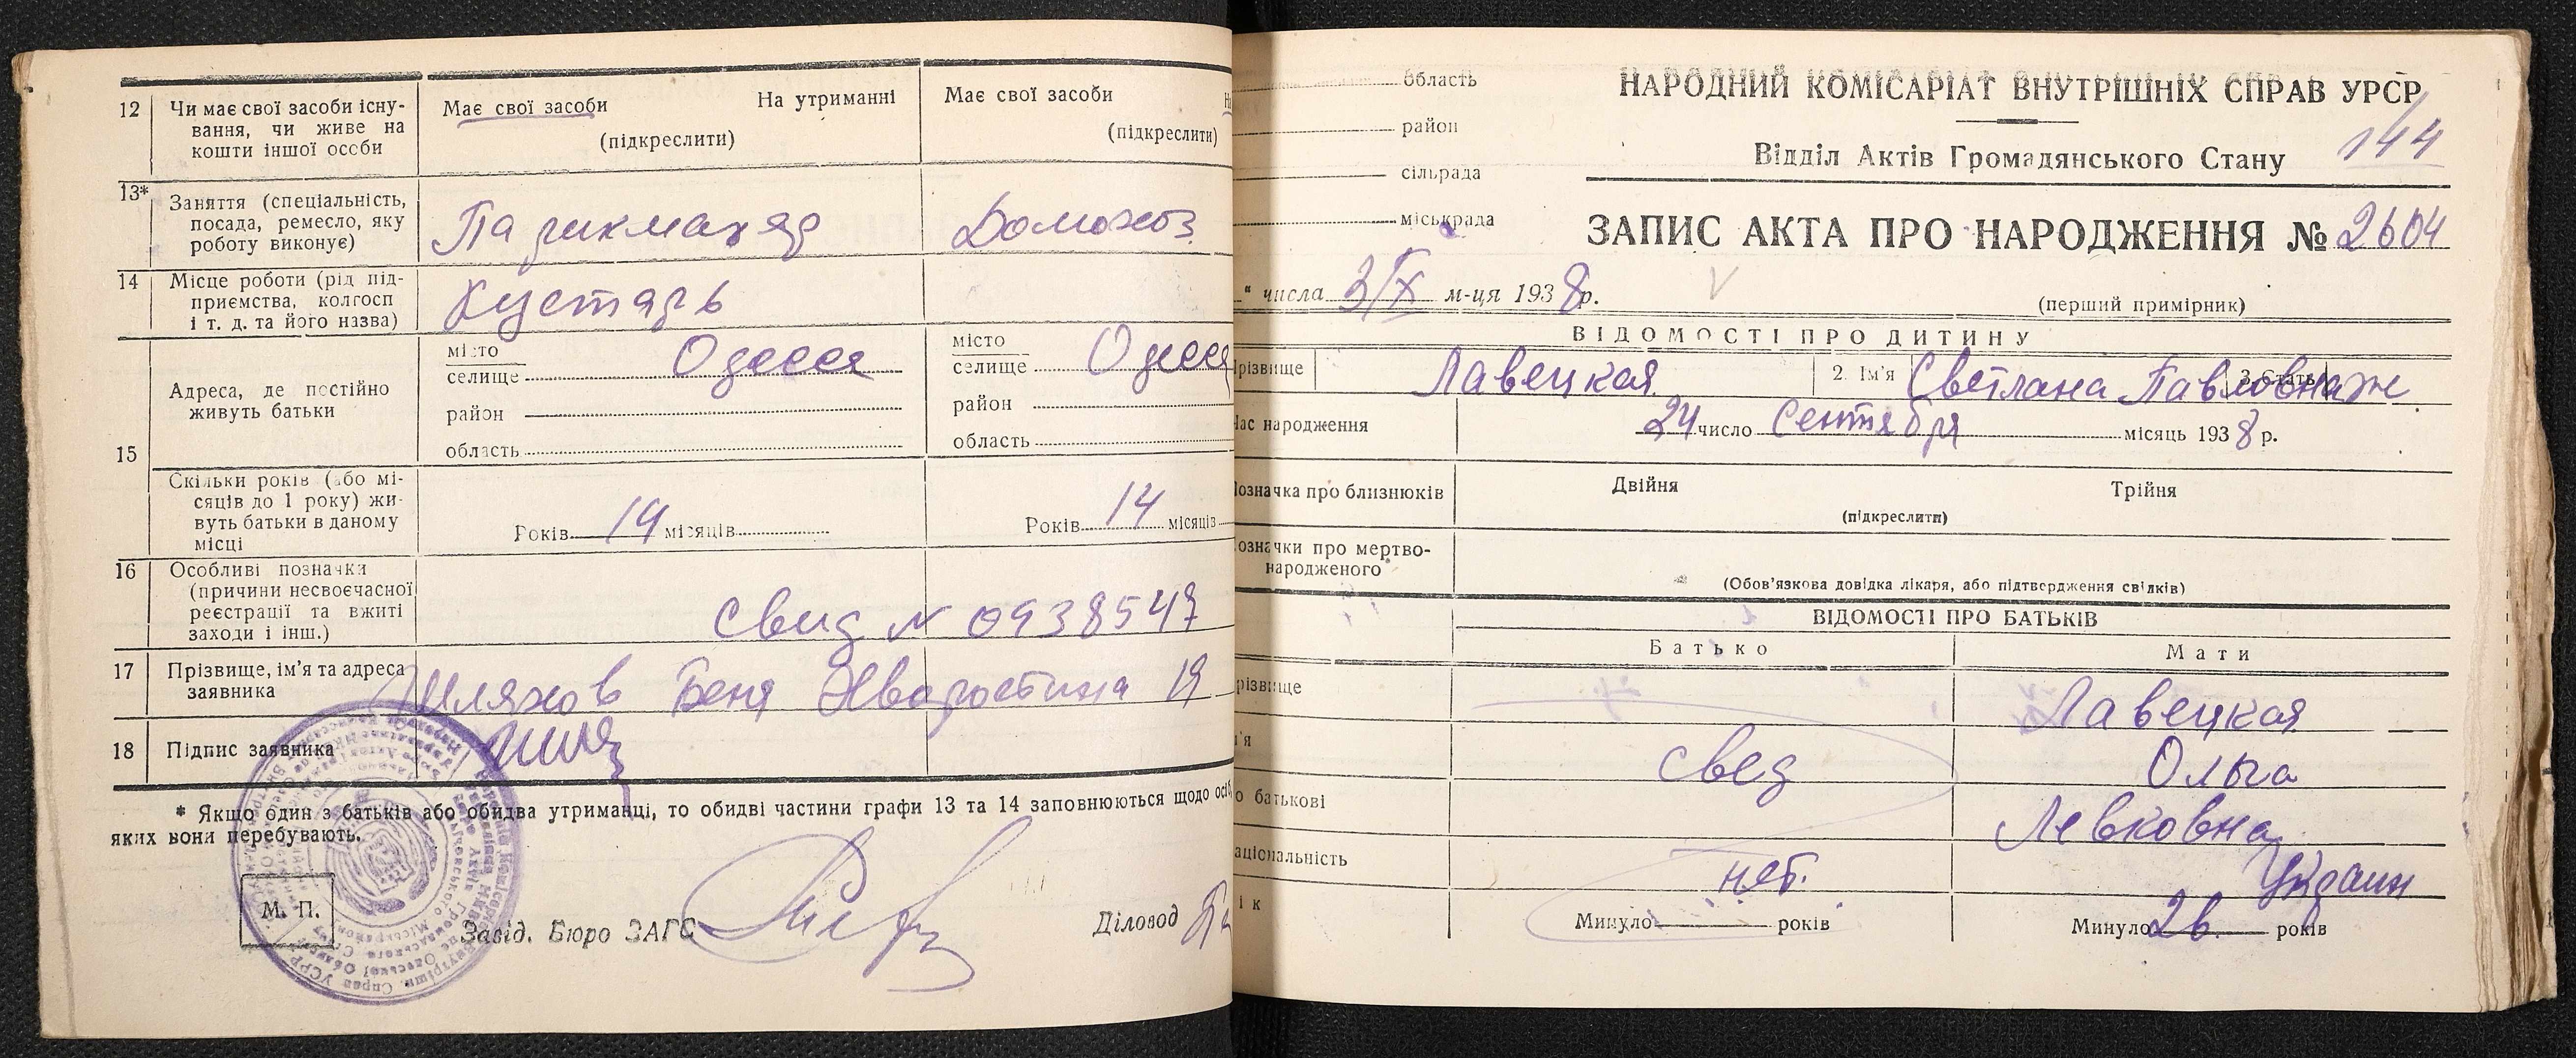 12 Чи має свої засоби існу-
вання, чи живе на
кошти іншої особи
Має свої засоби На утриманні
(підкреслити)
Має свої засоби
(підкреслити)
13* Заняття (спеціальність,
посада, ремесло, яку
роботу виконує)
Парикмахер
Домохоз.
14 Місце роботи (рід під-
приємства, колгосп
і т. д. та його назва)
Кустарь
15 Адреса, де постійно
живуть батьки
місто
селище Одесса
район
область
місто
селище Одесса
район
область
Скільки років (або мі-
сяців до 1 року) жи-
вуть батьки в даному
місці
Років 14 місяців
Років 14 місяців
16 Особливі позначки
(причини несвоєчасної
реєстрації та вжиті
заходи і інш.)
Свид N 0938547
17 Прізвище, ім'я та адреса
заявника
Шляхов Беня 19
18 Підпис заявника
* Якщо один з батьків або обидва утриманці, то обидві частини графи 13 та 14 заповнюються щодо осіб,
яких вони перебувають.
М. П.
Завід. Бюро ЗАГС
Діловод
область
район
сільрада
міськрада
НАРОДНИЙ КОМІСАРІАТ ВНУТРІШНІХ СПРАВ УРСР
144
Відділ Актів Громадянського Стану
ЗАПИС АКТА ПРО НАРОДЖЕННЯ № 2604
" числа 3/X м-ця 1938 р.
(перший примірник)
ВІДОМОСТІ ПРО ДИТИНУ
різвище Лавецкая 2. Ім'я Светлана Павловна 3. Стать ж
Час народження 24 число Сентября місяць 1938 р.
Позначка про близнюків Двійня Трійня
(підкреслити)
означки про мертво-
народженого
(Обов'язкова довідка лікаря, або підтвердження свідків)
ВІДОМОСТІ ПРО БАТЬКІВ
Батько Мати
різвище Лавецкая
м'я Ольга
свед
о батькові Левковна
аціональність нет. Украин
ік Минуло років Минуло 26 років